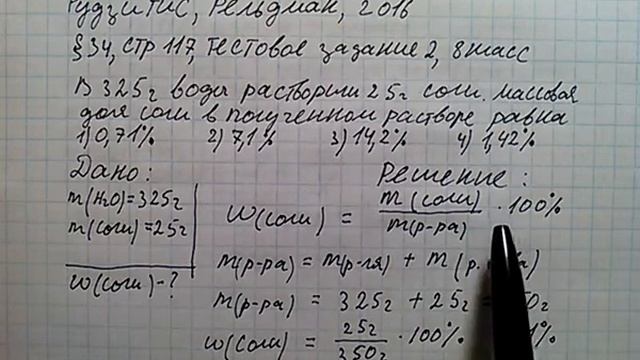 Гудзитис, Фельдман, 2016
§34, стр 117, тестовое задание 2, 8 класс
В 325г воды растворили 25г соли. Массовая
доля соли в полученном растворе равна
1) 0,71% 2) 7,1% 3) 14,2% 4) 1,42%
Дано: Решение:
m(H2O)=325г
m(соли)=25г
w(соли)-?
w(соли) = m(соли) / m(р-ра) · 100%
m(р-ра) = m(р-ля) + m(р.
m(р-ра) = 325г + 25г = 50г
w(соли) = 25г / 350г · 100% 1%